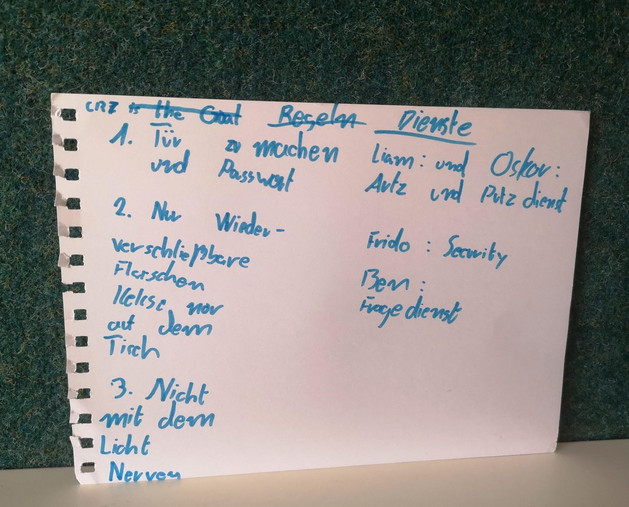 CR7 is the Goat Regeln
1. Tür zu machen
und Passwort
2. Nur Wieder-
verschließbare
Flaschen
Kekse nor
auf dem
Tisch
3. Nicht
mit dem
Licht
Nerven
Dienste
Liam: und Oskar:
Artz und Putz dienst
Frido: Security
Ben:
Frage dienst